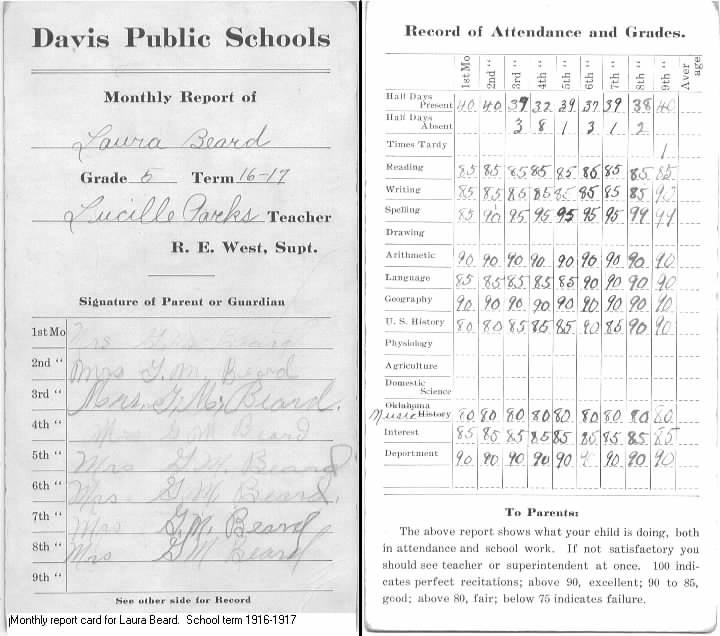 Davis Public Schools
Monthly Report of
Laura Beard
Grade 5 Term 16-17
Lucille Parks Teacher
R. E. West, Supt.
Signature of Parent or Guardian
1st Mo Mrs G. M. Beard
2nd " Mrs G. M. Beard
3rd " Mrs. G. M. Beard.
4th " M G M Beard
5th " Mrs G. M Beard
6th " Mrs. G. M Beard.
7th " Mrs G. M. Beard
8th " Mrs G M Beard
9th "
See other side for Record
Monthly report card for Laura Beard. School term 1916-1917
Record of Attendance and Grades.
1st Mo 2nd " 3rd " 4th " 5th " 6th " 7th " 8th " 9th " Aver age
Half Days Present 40 40 37 32 39 37 39 38 40
Half Days Absent 3 8 1 3 1 2
Times Tardy 1
Reading 85 85 85 85 85 85 85 85 85
Writing 85 85 85 85 85 85 85 85 90
Spelling 85 90 95 95 95 95 95 99 99
Drawing
Arithmetic 90 90 90 90 90 90 90 90 90
Language 85 85 85 85 85 90 90 90 90
Geography 90 90 90 90 90 90 90 90 90
U. S. History 80 80 85 85 85 90 85 90 90
Physiology
Agriculture
Domestic Science
Oklahoma History Music 80 80 80 80 80 80 80 80 80
Interest 85 85 85 85 85 85 85 85 85
Department 90 90 90 90 90 90 90 90
To Parents:
The above report shows what your child is doing, both
in attendance and school work. If not satisfactory you
should see teacher or superintendent at once. 100 indi-
cates perfect recitations; above 90, excellent; 90 to 85,
good; above 80, fair; below 75 indicates failure.